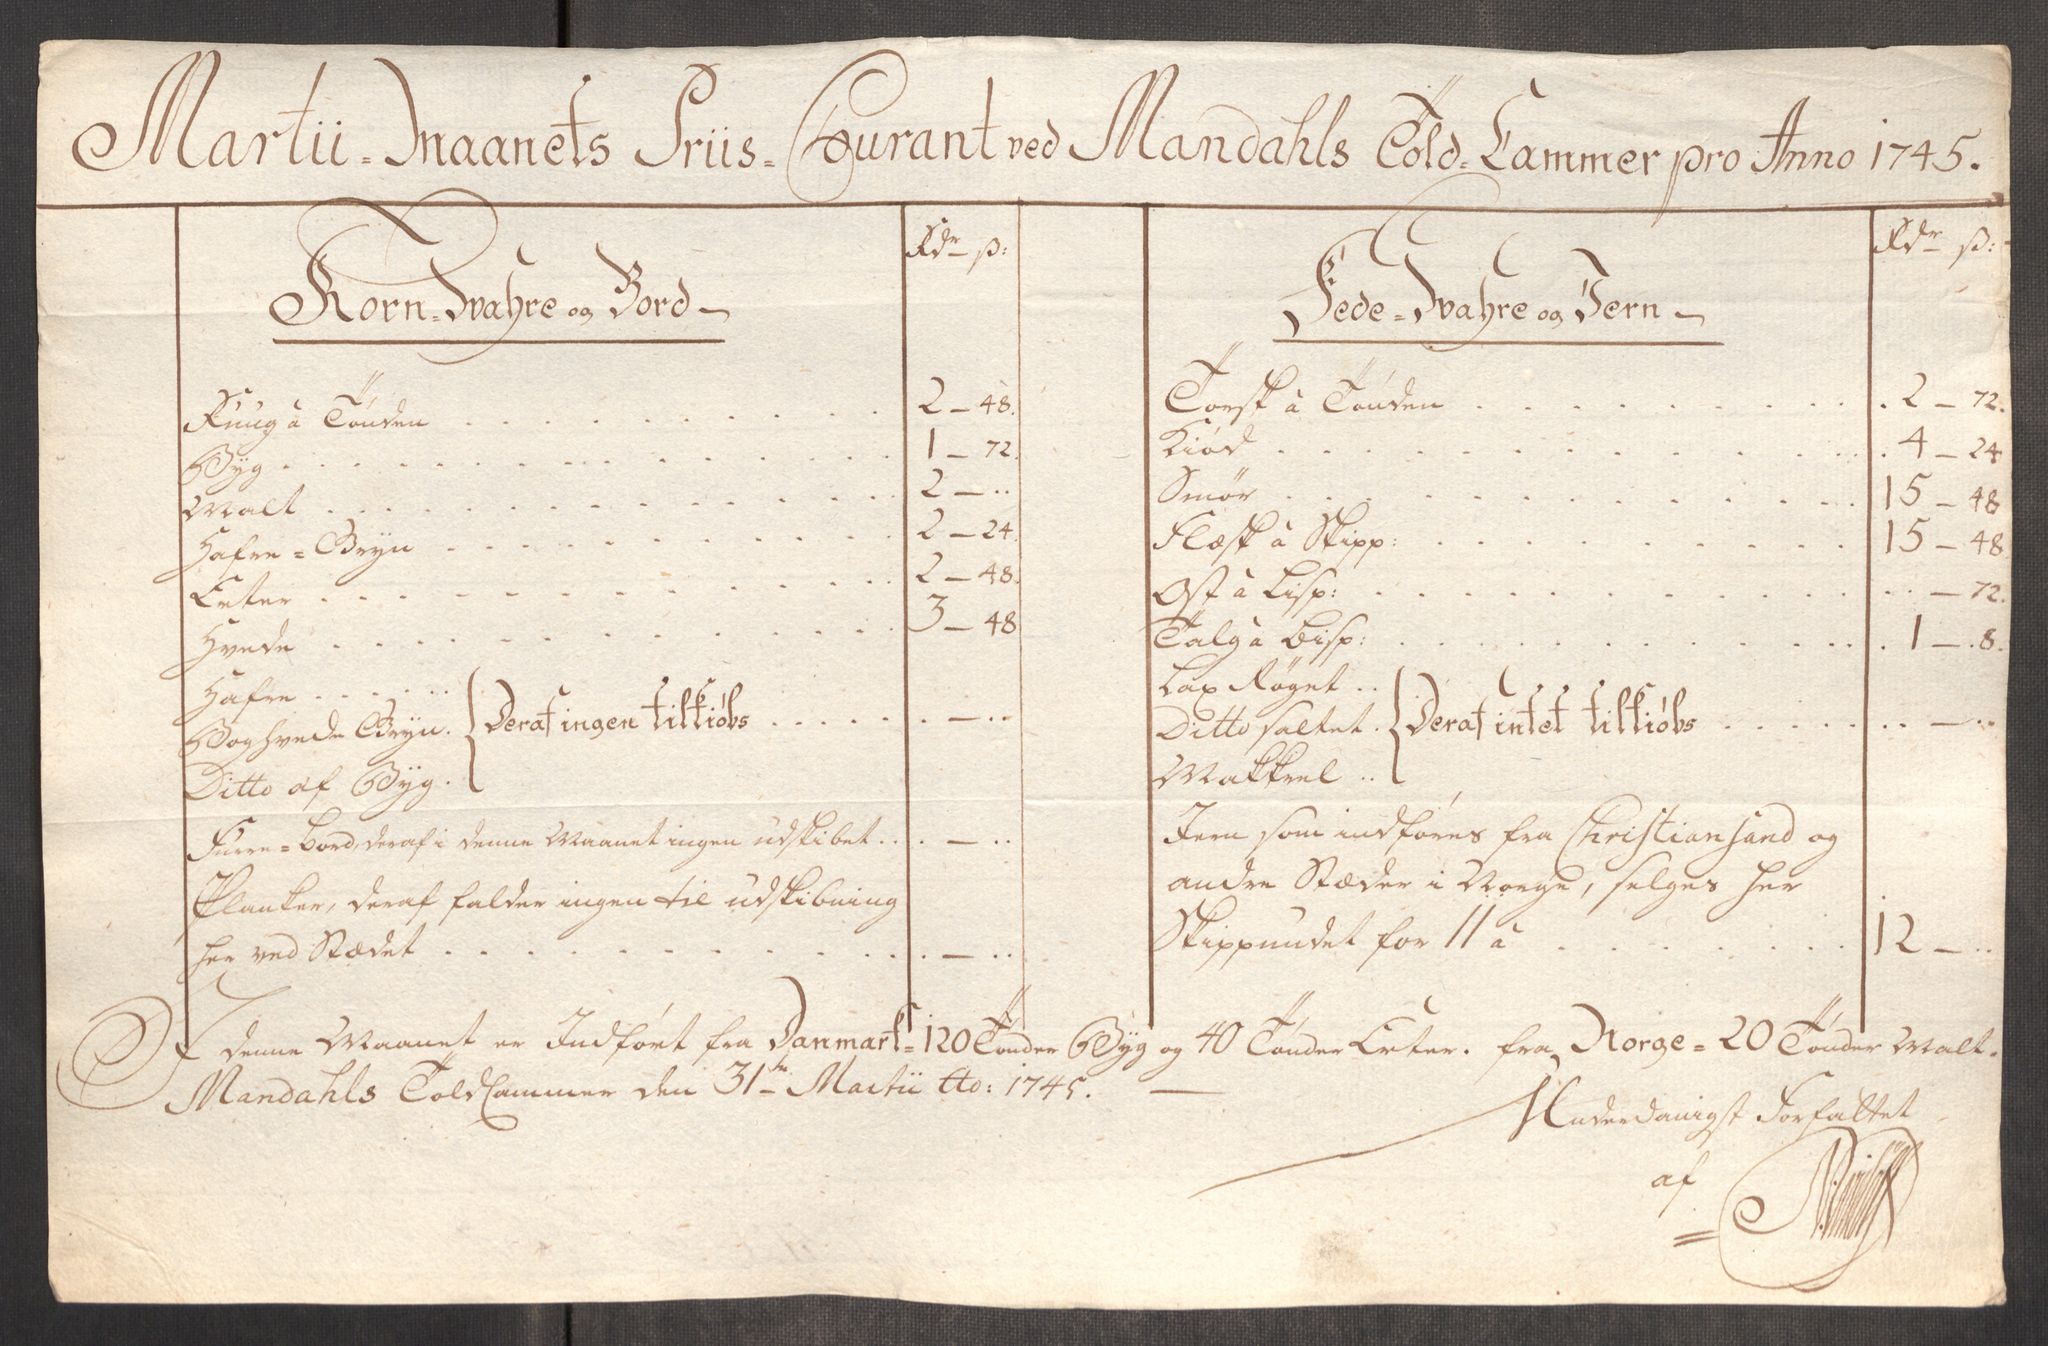 Martii-Maanets Priis-Courant ved Mandahls Told-Cammer pro Anno 1745.
Korn-Wahre og Bord
Rdr ß:
Ruug à Tønden 2 - 48.
Byg 1 - 72.
Malt 2 - ..
Hafre-Gryn 2 - 24.
Erter 2 - 48.
Hvede 3 - 48
Hafre
Boghvede Gryn. Deraf ingen tilkiøbs . - ..
Ditto af Byg.
Furre-bord, deraf i denne Maanet ingen udskibet . - ..
Planker, deraf falder ingen til udskibning
her ved Stædet . - ..
Fede-Wahre og Jern
Rdr ß:
Torsk à Tønden 2 - 72.
Kiød 4 - 24
Smør 15 - 48
Flæsk à Skipp: 15 - 48
Ost à Lisp: - 72.
Talg à Lisp: 1 - 8.
Lax Røget ..
Ditto saltet . Deraf intet tilkiøbs . - ..
Makkrel ..
Jern som indføres fra Christiansand og
andre Stæder i Norge, selges her
Skippundet for 11 à 12 - ..
I denne Maanet er Indført fra Danmark-120 Tønder Byg og 40 Tønder Erter. fra Norge-20 Tønder Malt.
Mandahls ToldCammer den 31te Martii Ao: 1745.
Underdanigst Forfattet
af